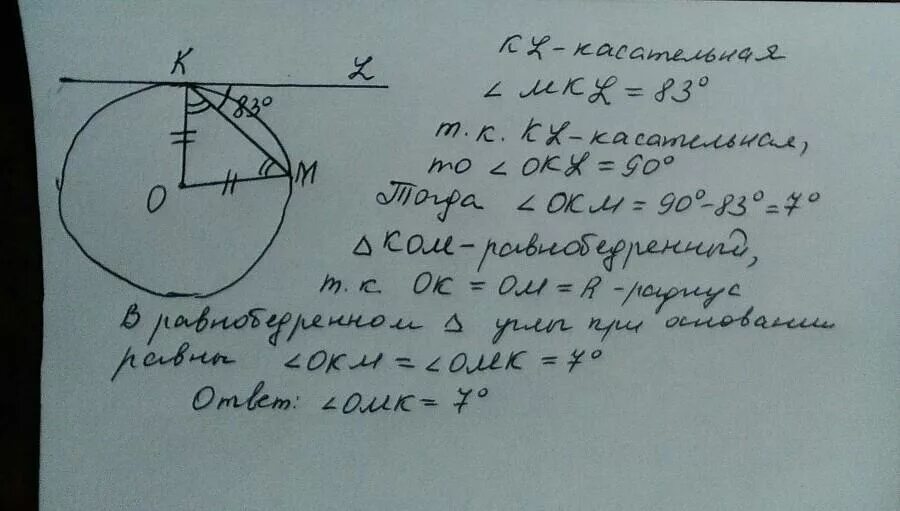 K L
83°
O M
KL - касательная
∠ MKL = 83°
т.к. KL - касательная,
то ∠ OKL = 90°
Тогда ∠ OKM = 90° - 83° = 7°
Δ KOM - равнобедренный,
т.к. OK = OM = R - радиус
В равнобедренном Δ углы при основании
равны ∠OKM = ∠OMK = 7°
Ответ: ∠OMK = 7°